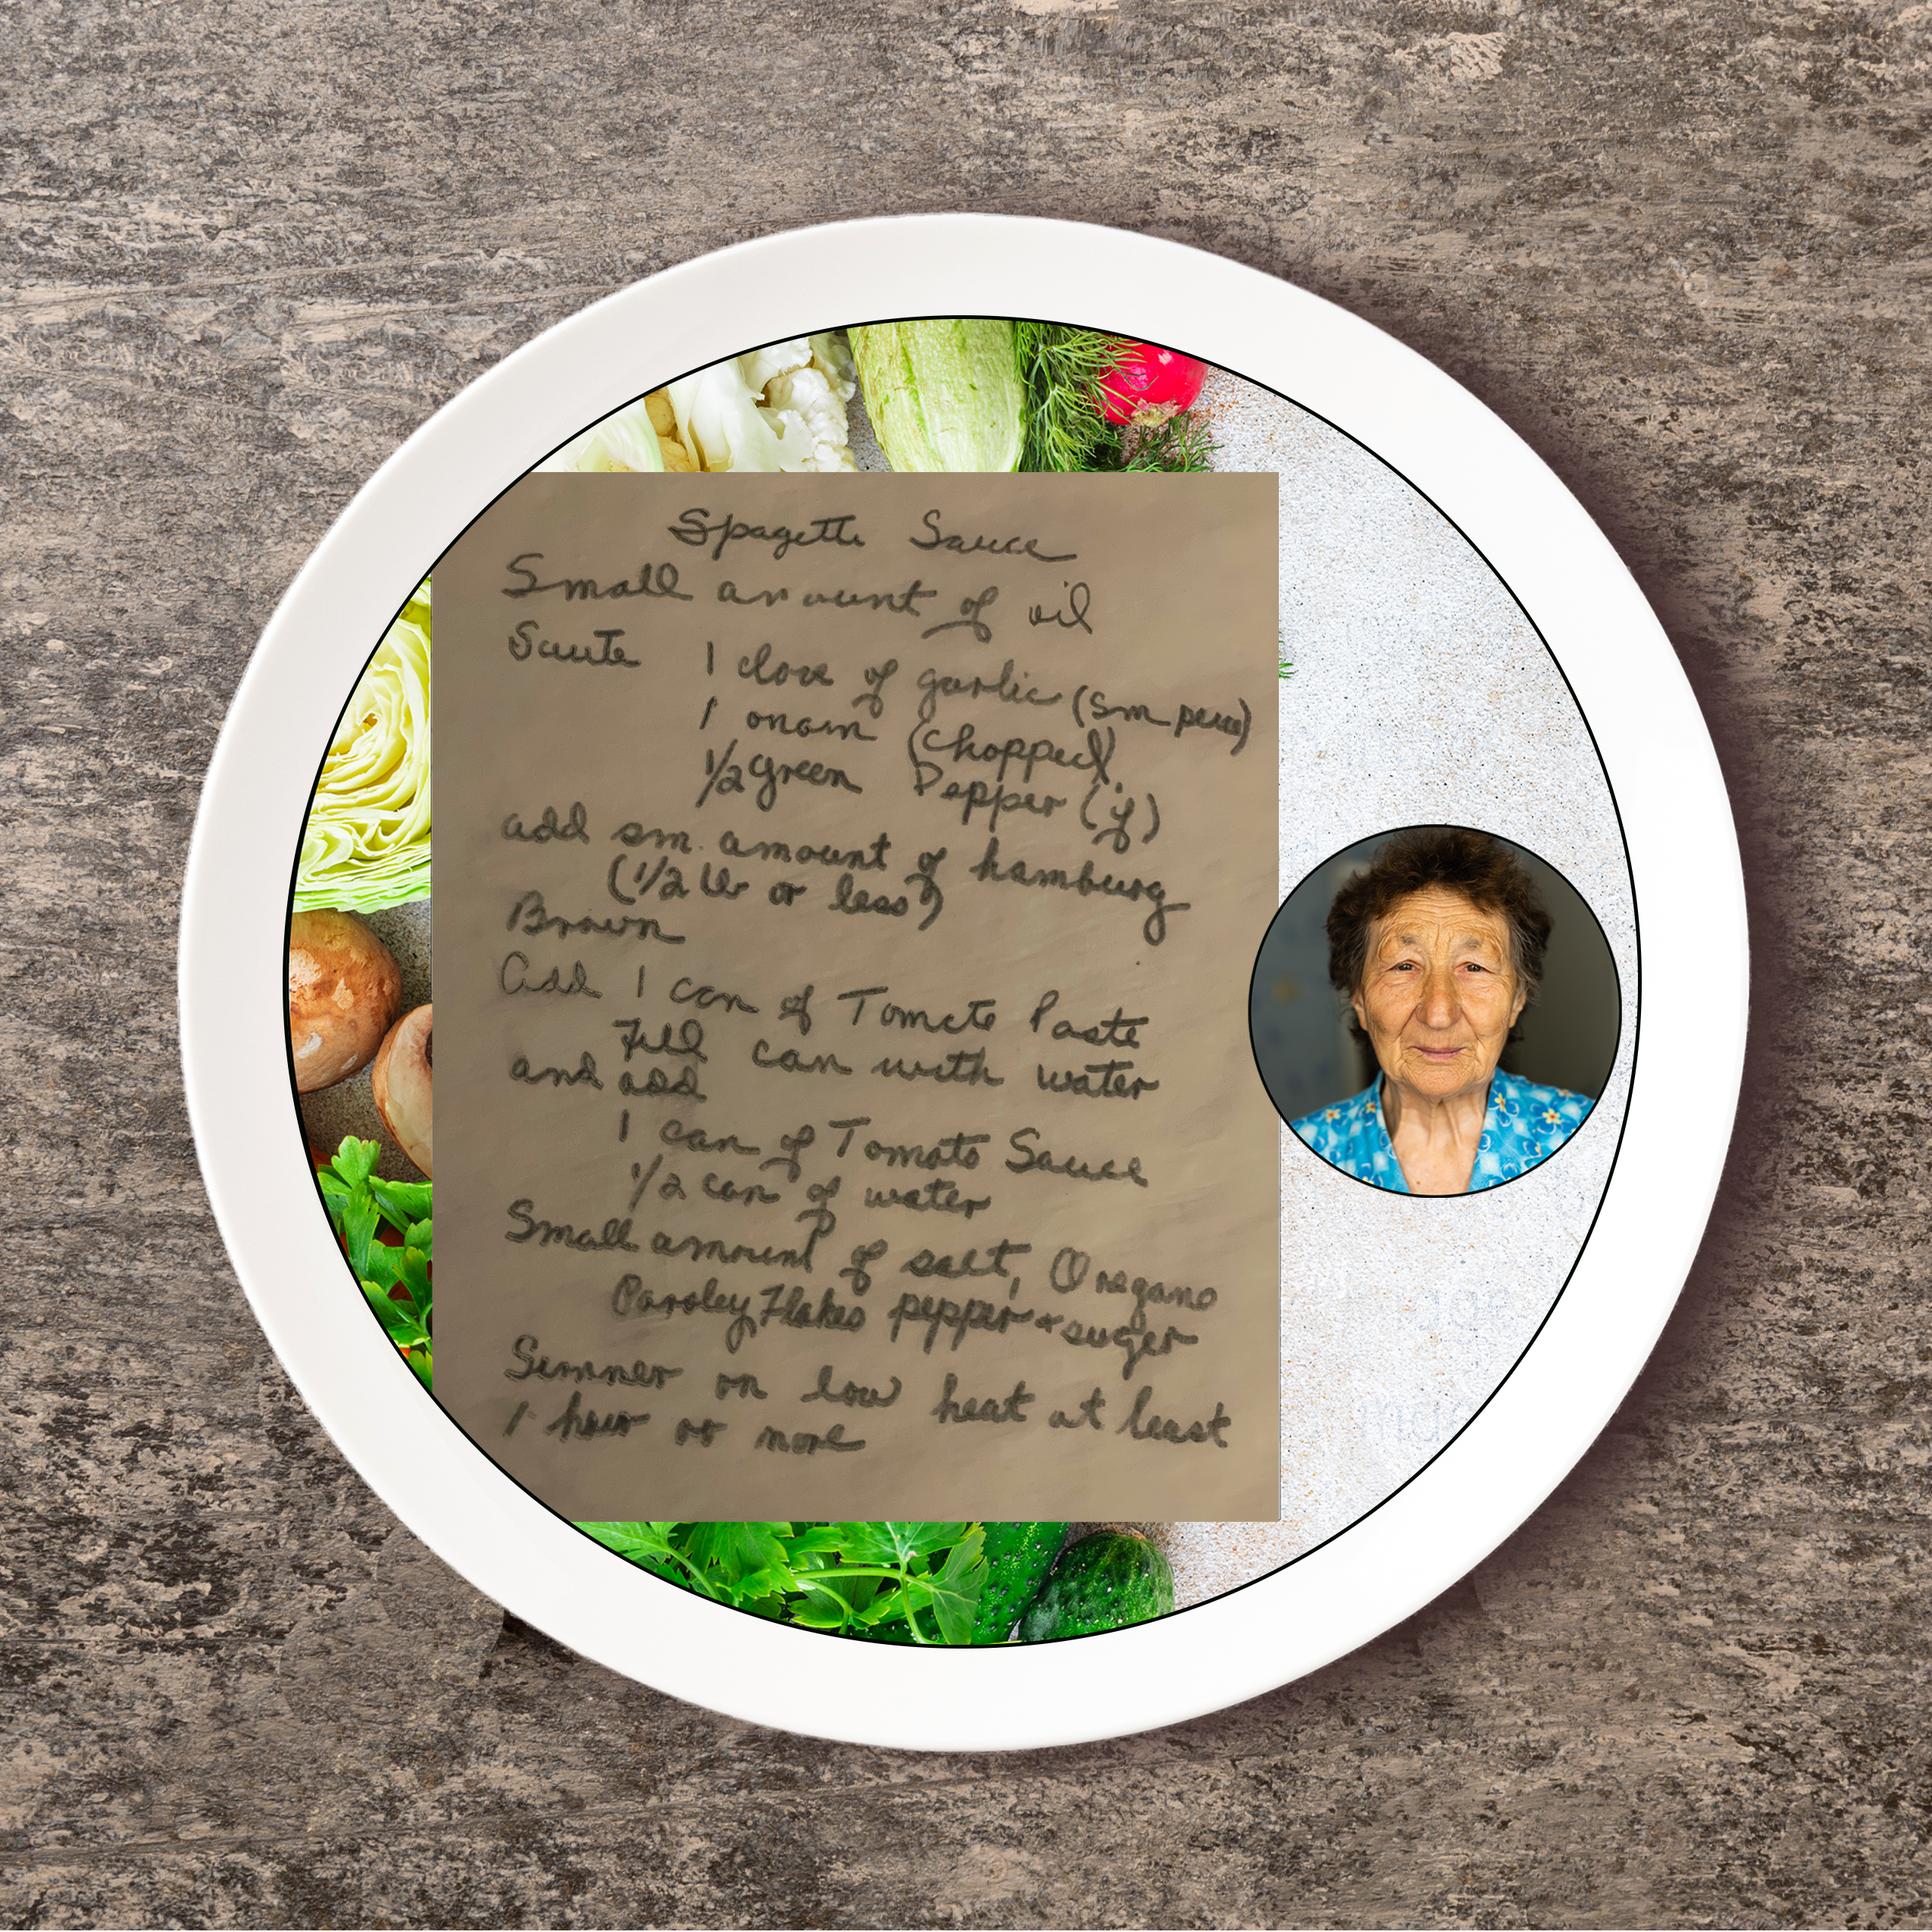 Spagette Sauce
Small amount of oil
Saute 1 clove of garlic (sm piece)
1 onoin (chopped)
1/2 green Pepper (if)
add sm. amount of hamburg
(1/2 lb or less)
Brown
Add 1 can of Tomato Paste
Fill can with water
and add
1 can of Tomato Sauce
1/2 can of water
Small amount of salt, Oregano
Parsley Flakes pepper + suger
Simner on low heat at least
1 hour or more